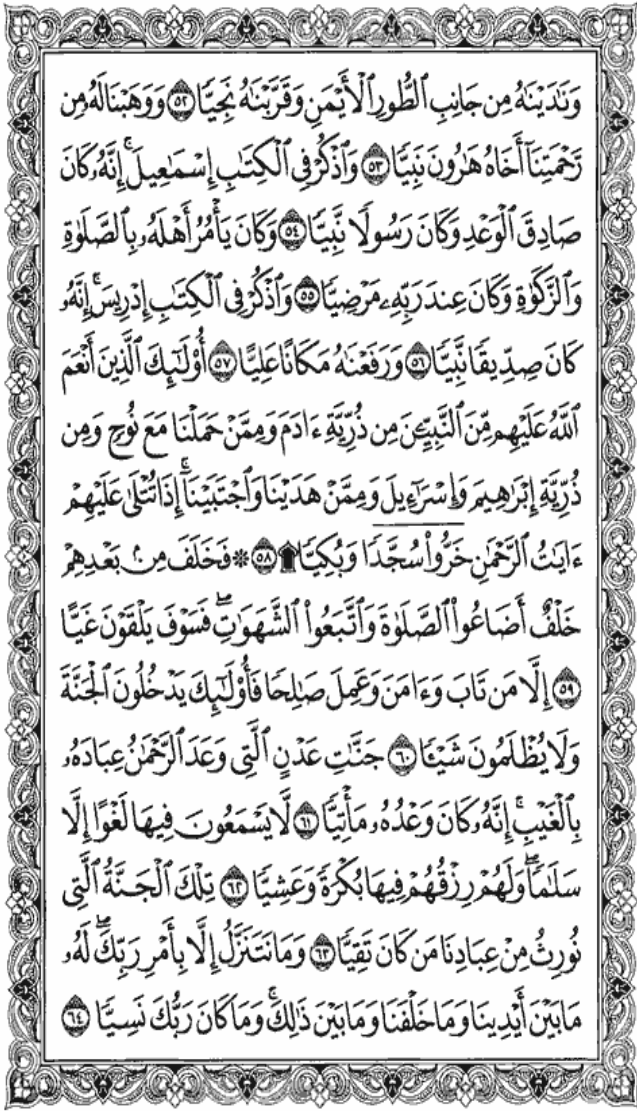 وَنَٰدَيْنَٰهُ مِن جَانِبِ ٱلطُّورِ ٱلْأَيْمَنِ وَقَرَّبْنَٰهُ نَجِيًّا ٥٢ وَوَهَبْنَا لَهُۥ مِن
رَّحْمَتِنَآ أَخَاهُ هَٰرُونَ نَبِيًّا ٥٣ وَٱذْكُرْ فِى ٱلْكِتَٰبِ إِسْمَٰعِيلَ ۚ إِنَّهُۥ كَانَ
صَادِقَ ٱلْوَعْدِ وَكَانَ رَسُولًا نَّبِيًّا ٥٤ وَكَانَ يَأْمُرُ أَهْلَهُۥ بِٱلصَّلَوٰةِ
وَٱلزَّكَوٰةِ وَكَانَ عِندَ رَبِّهِۦ مَرْضِيًّا ٥٥ وَٱذْكُرْ فِى ٱلْكِتَٰبِ إِدْرِيسَ ۚ إِنَّهُۥ
كَانَ صِدِّيقًا نَّبِيًّا ٥٦ وَرَفَعْنَٰهُ مَكَانًا عَلِيًّا ٥٧ أُو۟لَٰٓئِكَ ٱلَّذِينَ أَنْعَمَ
ٱللَّهُ عَلَيْهِم مِّنَ ٱلنَّبِيِّـۧنَ مِن ذُرِّيَّةِ ءَادَمَ وَمِمَّنْ حَمَلْنَا مَعَ نُوحٍ وَمِن
ذُرِّيَّةِ إِبْرَٰهِيمَ وَإِسْرَٰٓءِيلَ وَمِمَّنْ هَدَيْنَا وَٱجْتَبَيْنَآ ۚ إِذَا تُتْلَىٰ عَلَيْهِمْ
ءَايَٰتُ ٱلرَّحْمَٰنِ خَرُّوا۟ سُجَّدًا وَبُكِيًّا ۩ ٥٨ ۞ فَخَلَفَ مِنۢ بَعْدِهِمْ
خَلْفٌ أَضَاعُوا۟ ٱلصَّلَوٰةَ وَٱتَّبَعُوا۟ ٱلشَّهَوَٰتِ ۖ فَسَوْفَ يَلْقَوْنَ غَيًّا
٥٩ إِلَّا مَن تَابَ وَءَامَنَ وَعَمِلَ صَٰلِحًا فَأُو۟لَٰٓئِكَ يَدْخُلُونَ ٱلْجَنَّةَ
وَلَا يُظْلَمُونَ شَيْـًٔا ٦٠ جَنَّٰتِ عَدْنٍ ٱلَّتِى وَعَدَ ٱلرَّحْمَٰنُ عِبَادَهُۥ
بِٱلْغَيْبِ ۚ إِنَّهُۥ كَانَ وَعْدُهُۥ مَأْتِيًّا ٦١ لَّا يَسْمَعُونَ فِيهَا لَغْوًا إِلَّا
سَلَٰمًا ۖ وَلَهُمْ رِزْقُهُمْ فِيهَا بُكْرَةً وَعَشِيًّا ٦٢ تِلْكَ ٱلْجَنَّةُ ٱلَّتِى
نُورِثُ مِنْ عِبَادِنَا مَن كَانَ تَقِيًّا ٦٣ وَمَا نَتَنَزَّلُ إِلَّا بِأَمْرِ رَبِّكَ ۖ لَهُۥ
مَا بَيْنَ أَيْدِينَا وَمَا خَلْفَنَا وَمَا بَيْنَ ذَٰلِكَ ۚ وَمَا كَانَ رَبُّكَ نَسِيًّا ٦٤